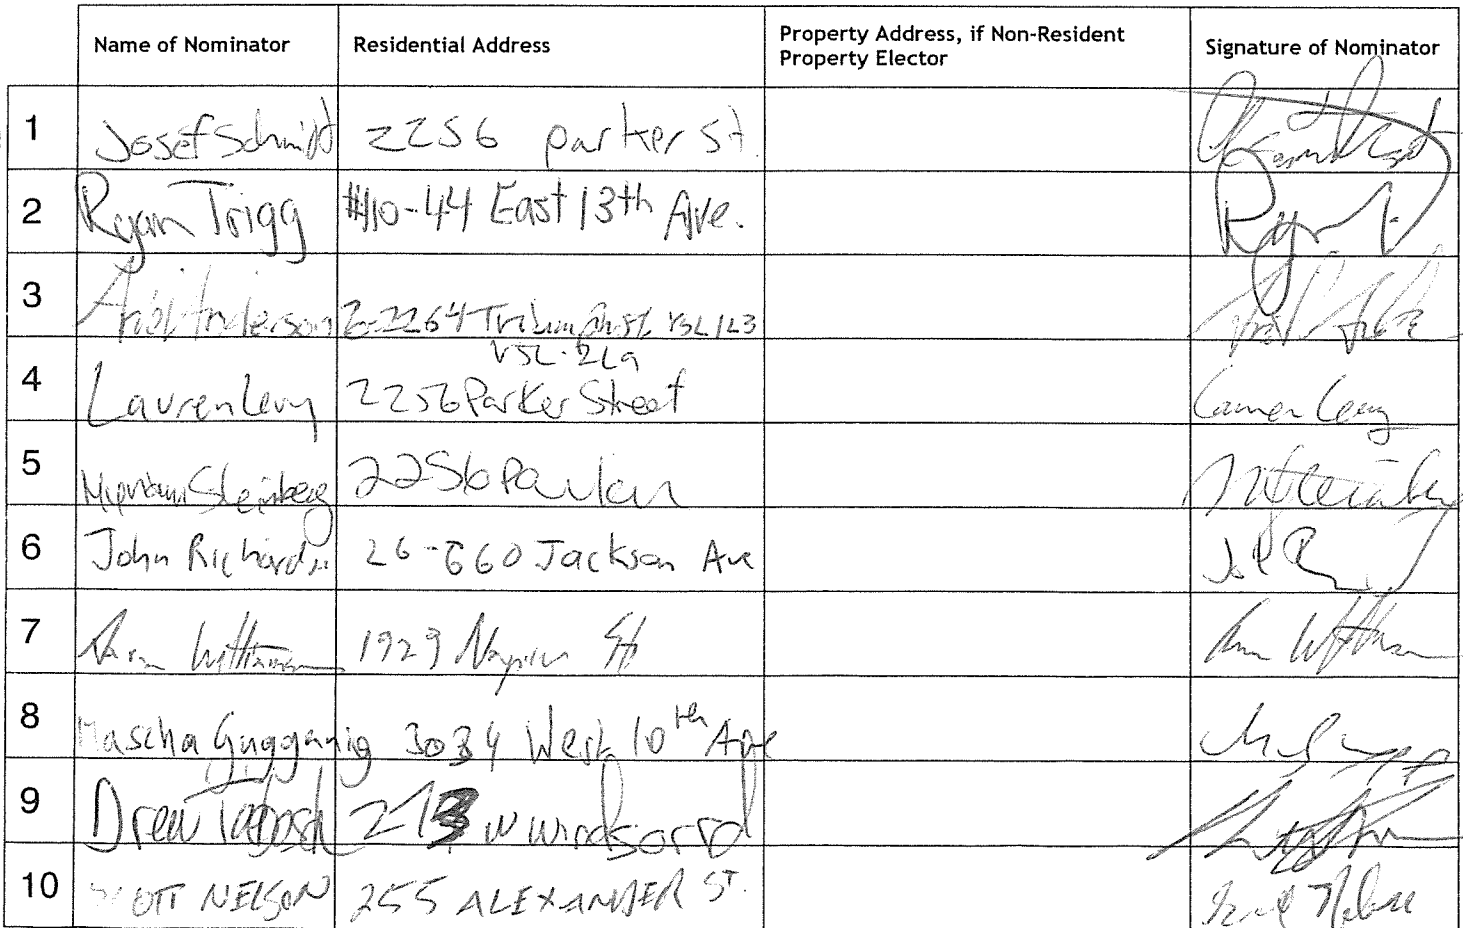 Name of Nominator Residential Address Property Address, if Non-Resident Property Elector Signature of Nominator
1 Josef Schmidt 2256 parker st.
2 Ryan Trigg #10-44 East 13th Ave.
3 Ariel Anderson 2-2264 Triumph st V5L 1L3
V5L-2L9
4 Lauren Levy 2256 Parker Street Lauren Levy
5 Myriam Steinberg 2256 Parker
6 John Richardson 26-660 Jackson Ave
7 1929 Napier St
8 Mascha Gugganig 3034 West 10th Ave
9 Drew W windsor rd
10 SCOTT NELSON 255 ALEXANDER ST.